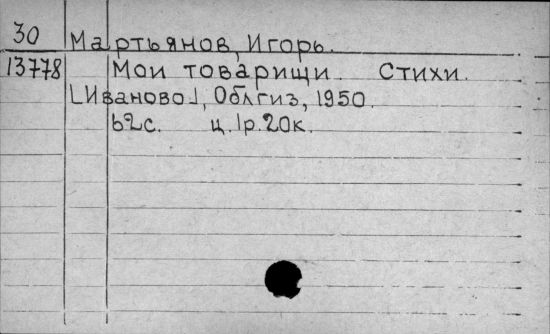 30 Мартьянов, Игорь.
13778 Мои товарищи. Стихи.
[Иваново], Облгиз, 1950.
62с. ц. 1р.20к.